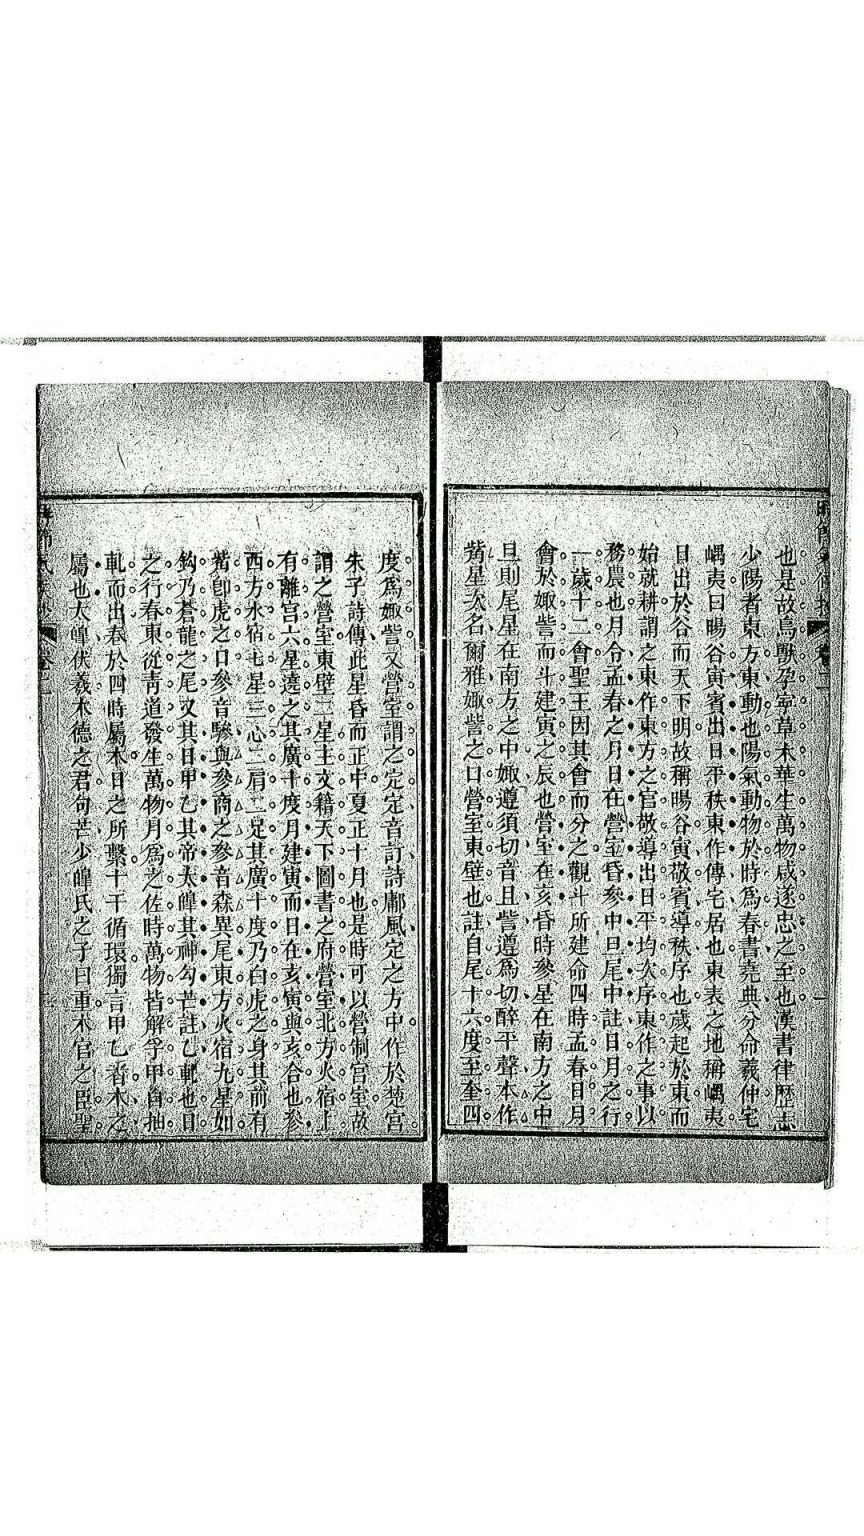 也是故鳥獸孕字草木華生萬物咸遂忠之至也漢書律歷志
少陽者東方東動也陽氣動物於時爲春書堯典分命羲仲宅
嵎夷曰暘谷寅賓出日平秩東作傳宅居也東表之地稱嵎夷
日出於谷而天下明故稱暘谷寅敬賓導秩序也歲起於東而
始就耕謂之東作東方之官敬導出日平均次序東作之事以
務農也月令孟春之月日在營室昏參中旦尾中註日月之行
一歲十二會聖王因其會而分之觀斗所建命四時孟春日月
會於娵訾而斗建寅之辰也營室在亥昏時參星在南方之中
旦則尾星在南方之中娵遵須切音且訾遵爲切醉平聲本作
觜星次名爾雅娵訾之口營室東壁也註自尾十六度至奎四
度爲娵訾又營室謂之定定音訂詩鄘風定之方中作於楚宮
朱子詩傳此星昏而正中夏正十月也是時可以營制宮室故
謂之營室東壁二星主文籍天下圖書之府營室北方火宿上
有離宮六星遶之其廣十度月建寅而日在亥寅與亥合也參
西方水宿七星三心二肩二足其廣十度乃白虎之身其前有
觜卽虎之口參音驂與參商之參音森異尾東方火宿九星如
鈎乃蒼龍之尾又其日甲乙其帝太皥其神勾芒註乙軋也日
之行春東從靑道發生萬物月爲之佐時萬物皆解孚甲自抽
軋而出春於四時屬木日之所繫十干循環獨言甲乙者木之
屬也太皥伏羲木德之君句芒少皥氏之子曰重木官之臣聖